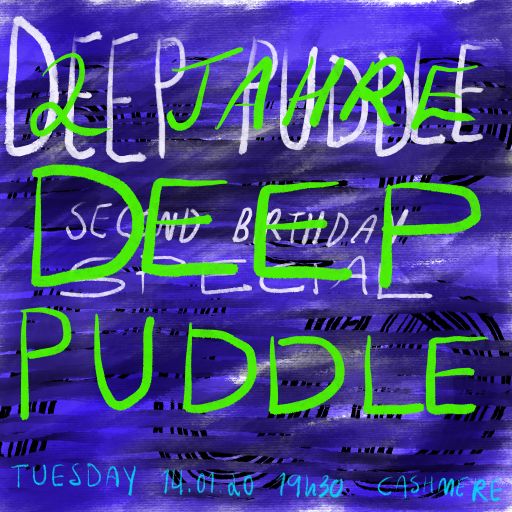 DEEP PUDDLE
2 JAHRE
DEEP
SECOND BIRTHDAY
SPECIAL
PUDDLE
TUESDAY 14.01.20 19h30 CASHMERE